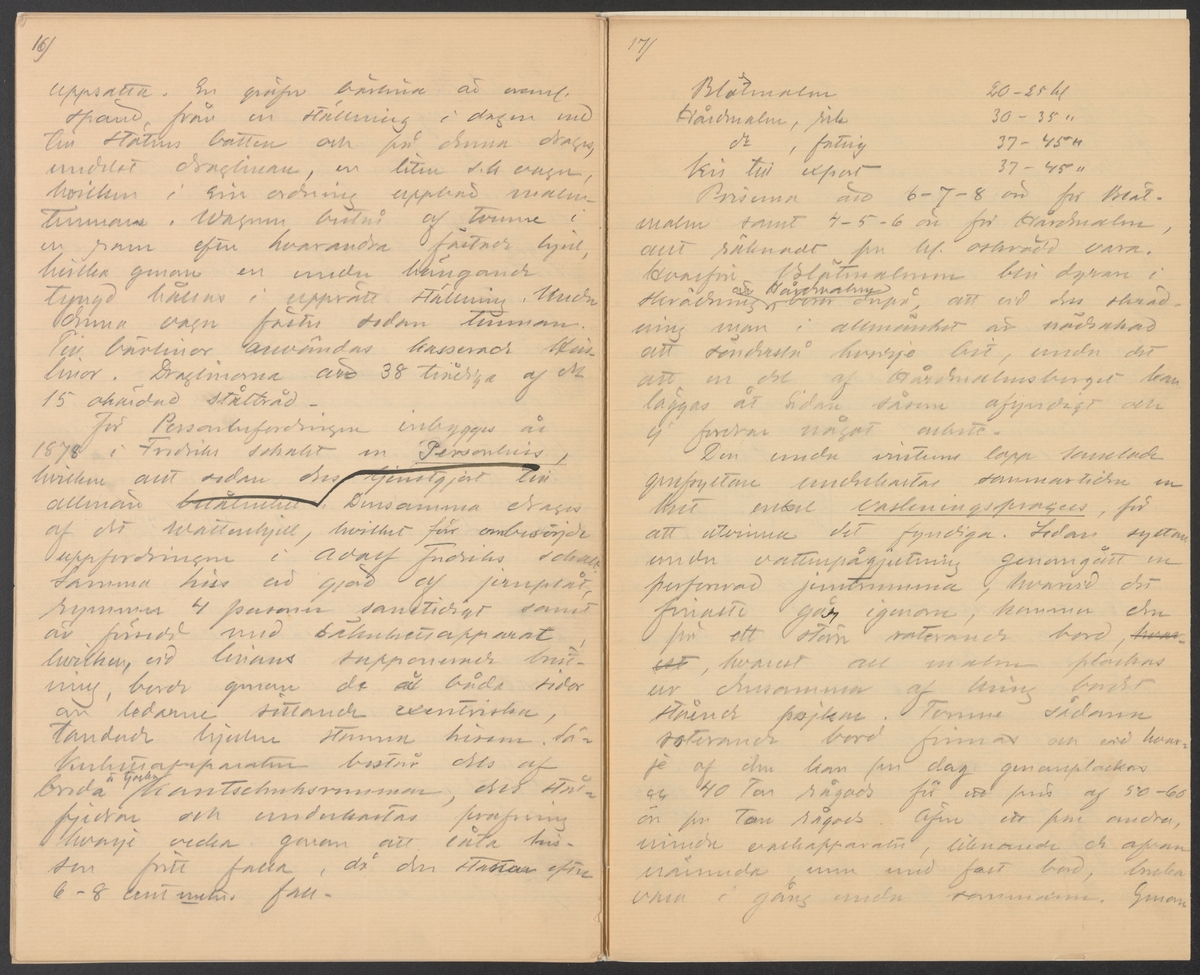 16/
uppsatta. En gröfre bärlina är
spänd från en ställning i dagen ned
till stollens botten och på denna drages,
medelst draglinan, en liten s.k. vagn,
hvilken i sin ordning uppbär malm-
tunnan. Wagnen består af tvenne i
en ram efter hvarandra fästade hjul,
hvilka genom en under hängande
tyngd hållas i upprätt ställning. Under
denna vagn fästes sedan tunnan.
Till bärlinor användas kasserade His-
linor. Draglinorna äro 38 trådiga af
15 ståltråd -
För Personbefordringen inbyggdes år
1878 i Fredriks schakt en Personhiss,
hvilken allt sedan dess tjenstgjort till
allmän belåtenhet. Densamma drages
af det Wattenhjul, hvilket förr ombesörjde
uppfordringen i Adolf Fredriks schakt
Samma hiss är gjord af jernplåt,
rymmer 4 personer samtidigt samt
är försedd med säkerhetsapparat,
hvilken, vid linans supponerade brist-
ning, borde genom de å båda sidor
om ledarne sittande exentriska,
tandade hjulen stanna hissen. Sä-
kerhetsapparaten består dels af
breda & tjocka kautschuksremmar, dels stål-
fjedrar och underkastas profning
hvarje vecka genom att låta his-
sen fritt falla, då den stannar efter
6-8 centimeters fall -
17/
Blötmalm 20-25 hl
Hårdmalm, rik 30-35 "
do , fattig 37-45 "
Kis till export 37-45 "
Priserna äro 6-7-8 öre för Blöt-
malm samt 4-5-6 öre för Hårdmalm,
allt räknadt pr hl. oskrädd vara.
Hvarför Blötmalmen blir dyrare i
skrädning än Hårdmalmen beror derpå, att vid dess skräd-
ning man i allmänhet är nödsakad
att sönderslå hvarje bit, under det
att en del af Hårdmalmsberget kan
läggas åt sidan såsom ofyndigt och
ej fordrar något arbete -
Den under vinterns lopp samlade
grufryttan underkastas sommartiden en
helt enkel vaskningsprocess, för
att utvinna det fyndiga. Sedan ryttan
under vattenpågjutning genomgått en
perforerad jerntrumma, hvarvid det
finaste går igenom, kommer den
på ett större roterande bord, hvar-
est, hvarest all malm plockas
ur densamma af kring bordet
stående pojkar. Tvenne sådana
roterande bord finnas och vid hvar-
je af dem kan pr dag genomplockas
40 Ton rågods för ett pris af 50-60
öre pr Ton rågods. Äfven ett par andra,
mindre vaskapparater, liknande de ofvan
nämnda, men med fast bord, bruka
vara i gång under sommaren. Genom